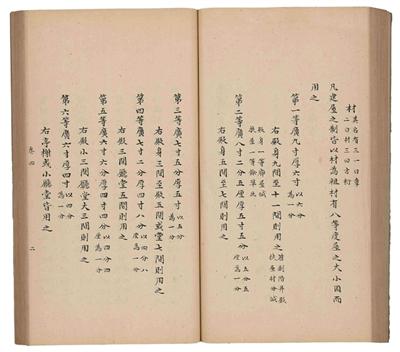 材其名有三一曰章二曰材三曰方桁
凡建屋之制皆以材為祖材有八等度屋之大小因而
用之
第一等廣九寸厚六寸以六分為一分
右殿身九間至十一間則用之若副階并殿挾屋材分減
殿身一等廊屋減挾屋一等餘準此
第二等廣八寸二分五釐厚五寸五分以五分五釐為一分
右殿身五間至七間則用之
第三等廣七寸五分厚五寸以五分為一分
右殿身三間至殿五間或堂七間則用之
第四等廣七寸二分厚四寸八分以四分八釐為一分
右殿三間廳堂五間則用之
第五等廣六寸六分厚四寸四分以四分四釐為一分
右殿小三間廳堂大三間則用之
第六等廣六寸厚四寸以四分為一分
右亭榭或小廳堂皆用之
卷四
二